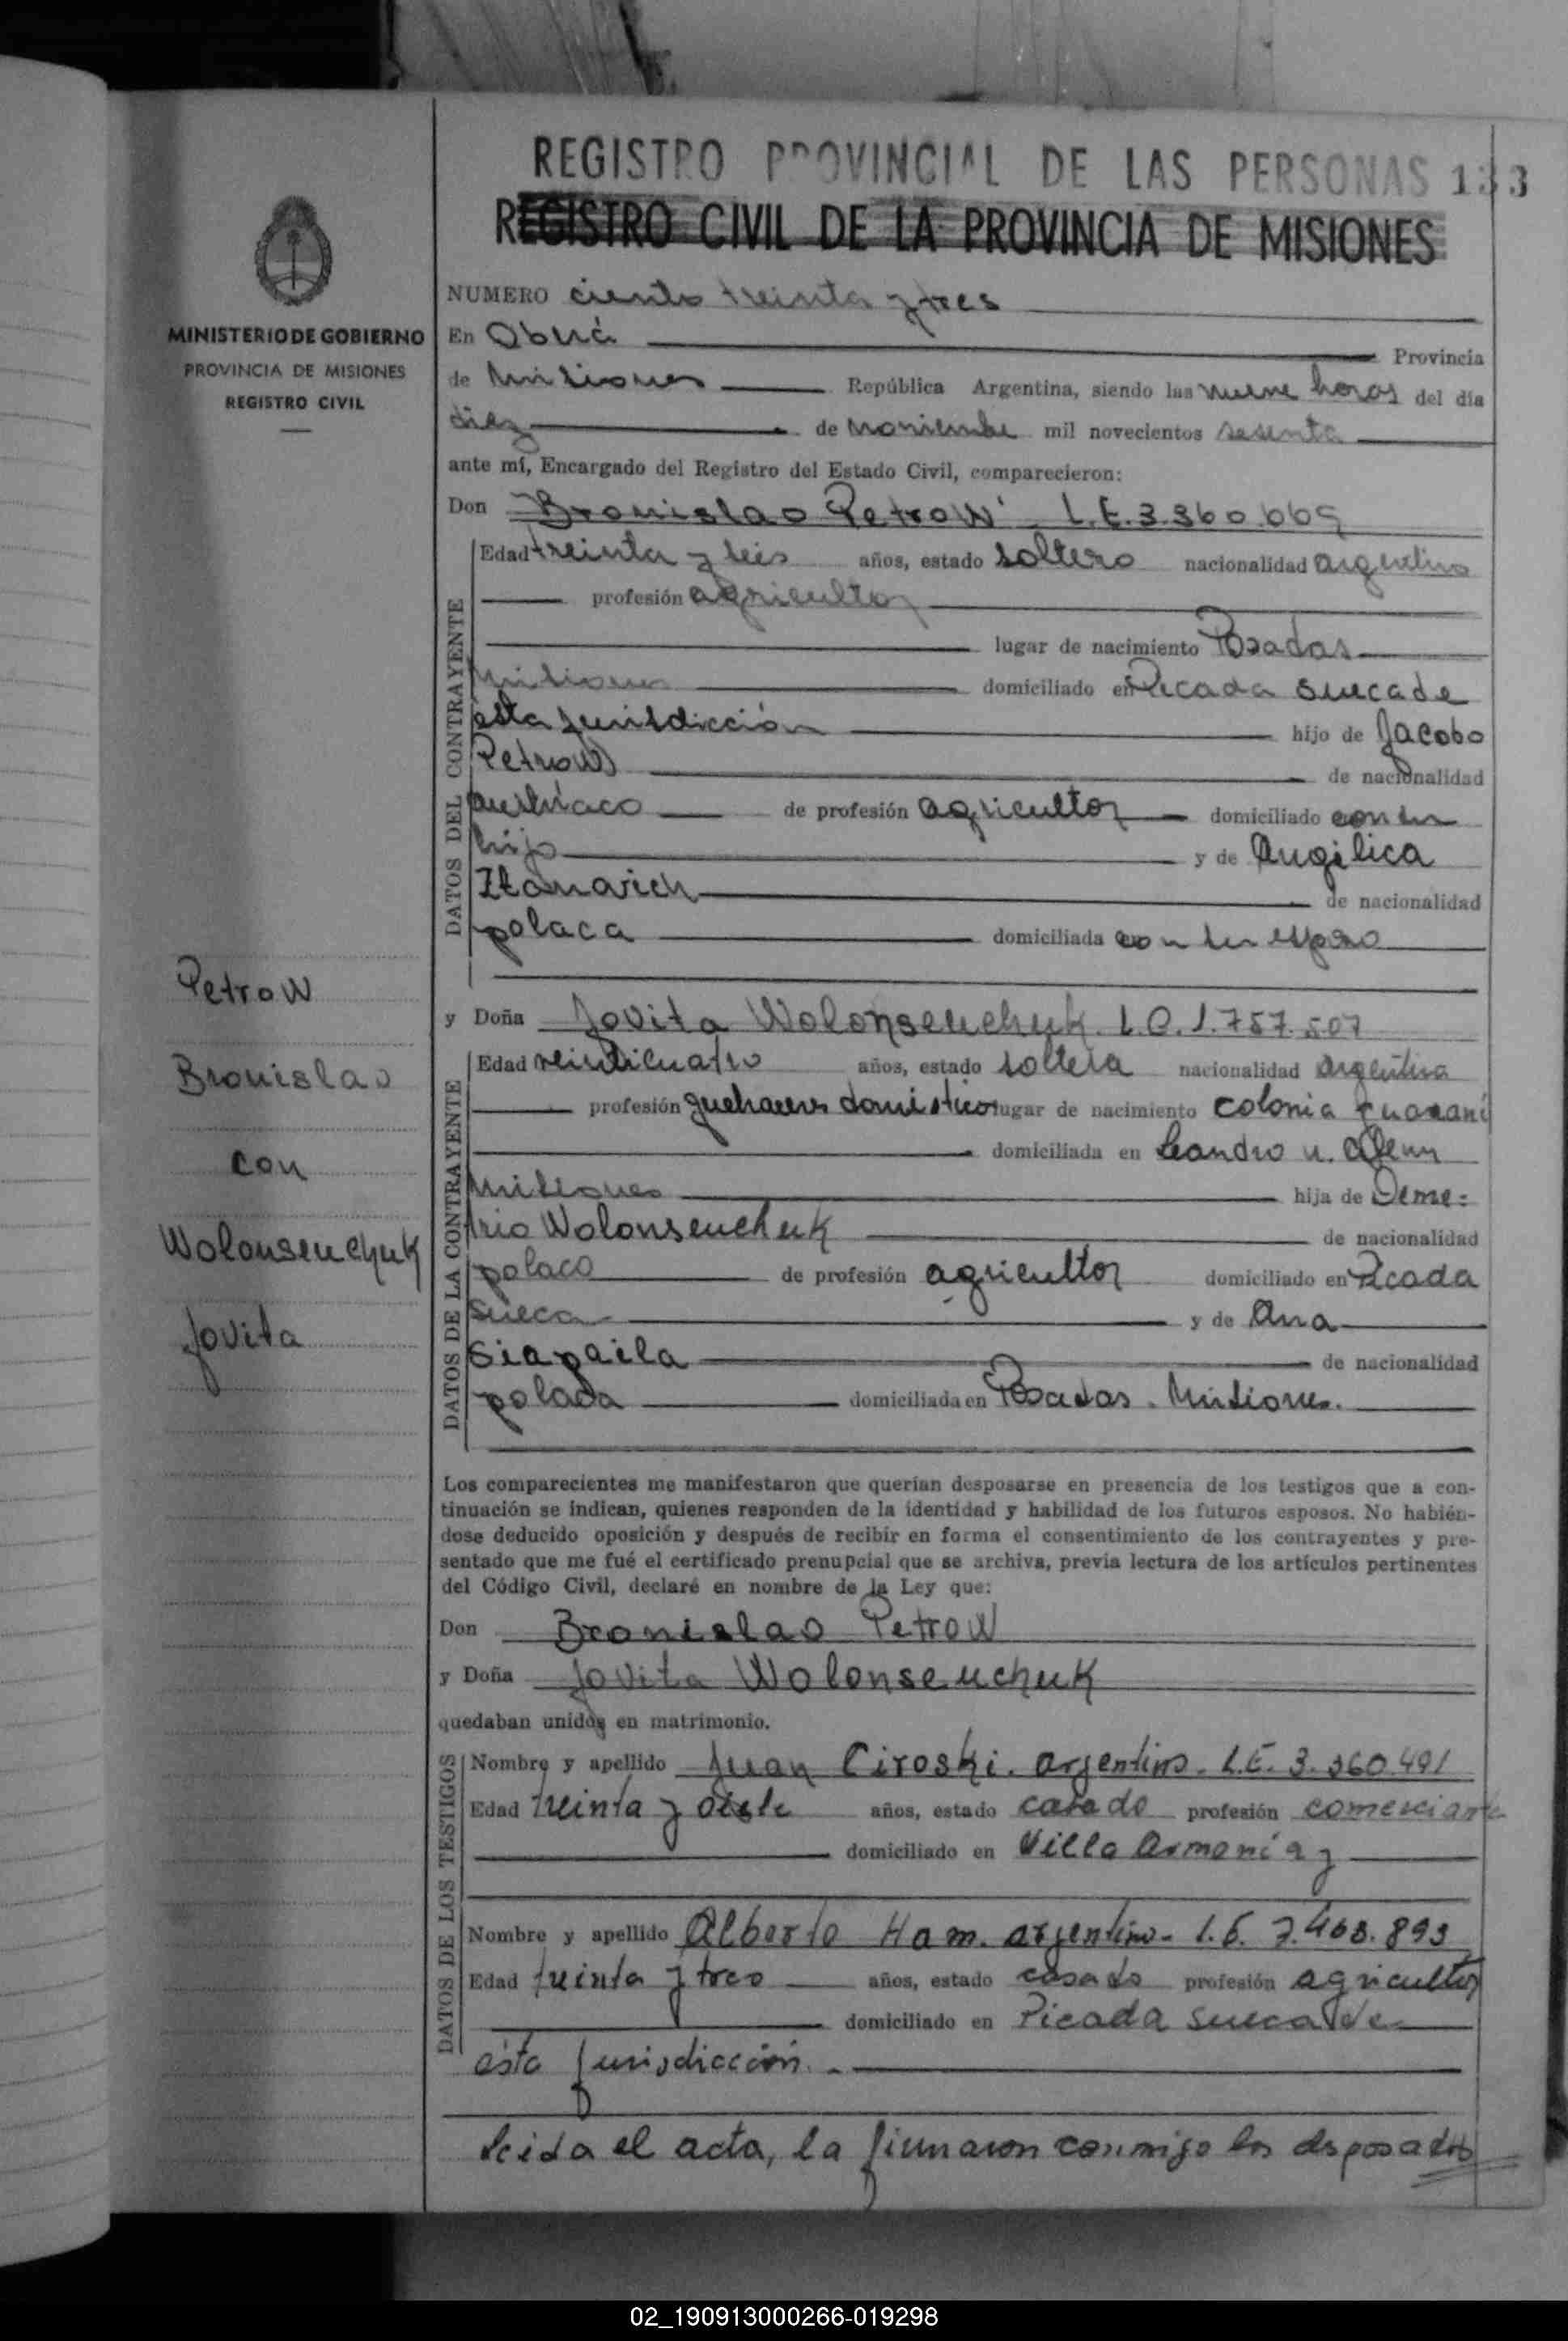 REGISTRO PROVINCIAL DE LAS PERSONAS 133
REGISTRO CIVIL DE LA PROVINCIA DE MISIONES
MINISTERIO DE GOBIERNO
PROVINCIA DE MISIONES
REGISTRO CIVIL
Petrow
Bronislao
con
Wolonsenchuk
Jovita
NUMERO ciento treinta y tres
En Oberá Provincia
de Misiones República Argentina, siendo las nueve horas del día
diez de noviembre mil novecientos sesenta
ante mí, Encargado del Registro del Estado Civil, comparecieron:
Don Bronislao Petrow L.E.3.360.669
DATOS DEL CONTRAYENTE
Edad treinta y seis años, estado soltero nacionalidad argentino
profesión agricultor
lugar de nacimiento Posadas
Misiones domiciliado en Picada sueca de
esta jurisdicción hijo de Jacobo
Petrow de nacionalidad
austríaco de profesión agricultor domiciliado con su
hijo y de Angélica
de nacionalidad
polaca domiciliada con su esposo
y Doña Jovita Wolonsenchuk L.C.1.757.507
DATOS DE LA CONTRAYENTE
Edad veinticuatro años, estado soltera nacionalidad argentina
profesión quehaceres domésticos lugar de nacimiento colonia guaraní
domiciliada en Leandro N. Alem
Misiones hija de Deme=
trio Wolonsenchuk de nacionalidad
polaco de profesión agricultor domiciliado en Picada
sueca y de Ana
de nacionalidad
polaca domiciliada en Posadas. Misiones.
Los comparecientes me manifestaron que querían desposarse en presencia de los testigos que a con-
tinuación se indican, quienes responden de la identidad y habilidad de los futuros esposos. No habién-
dose deducido oposición y después de recibir en forma el consentimiento de los contrayentes y pre-
sentado que me fué el certificado prenupcial que se archiva, previa lectura de los artículos pertinentes
del Código Civil, declaré en nombre de la Ley que:
Don Bronislao Petrow
y Doña Jovita Wolonsenchuk
quedaban unidos en matrimonio.
DATOS DE LOS TESTIGOS
Nombre y apellido Juan Ciroski. argentino. L.E. 3.360.491
Edad treinta y años, estado casado profesión comerciante
domiciliado en Villa Armonía y
Nombre y apellido Alberto Ham. argentino- L.E. 7.468.893
Edad treinta y tres años, estado casado profesión agricultor
domiciliado en Picada sueca de
ésta jurisdicción.-
Leida el acta, la firmaron conmigo los desposados
02_190913000266-019298